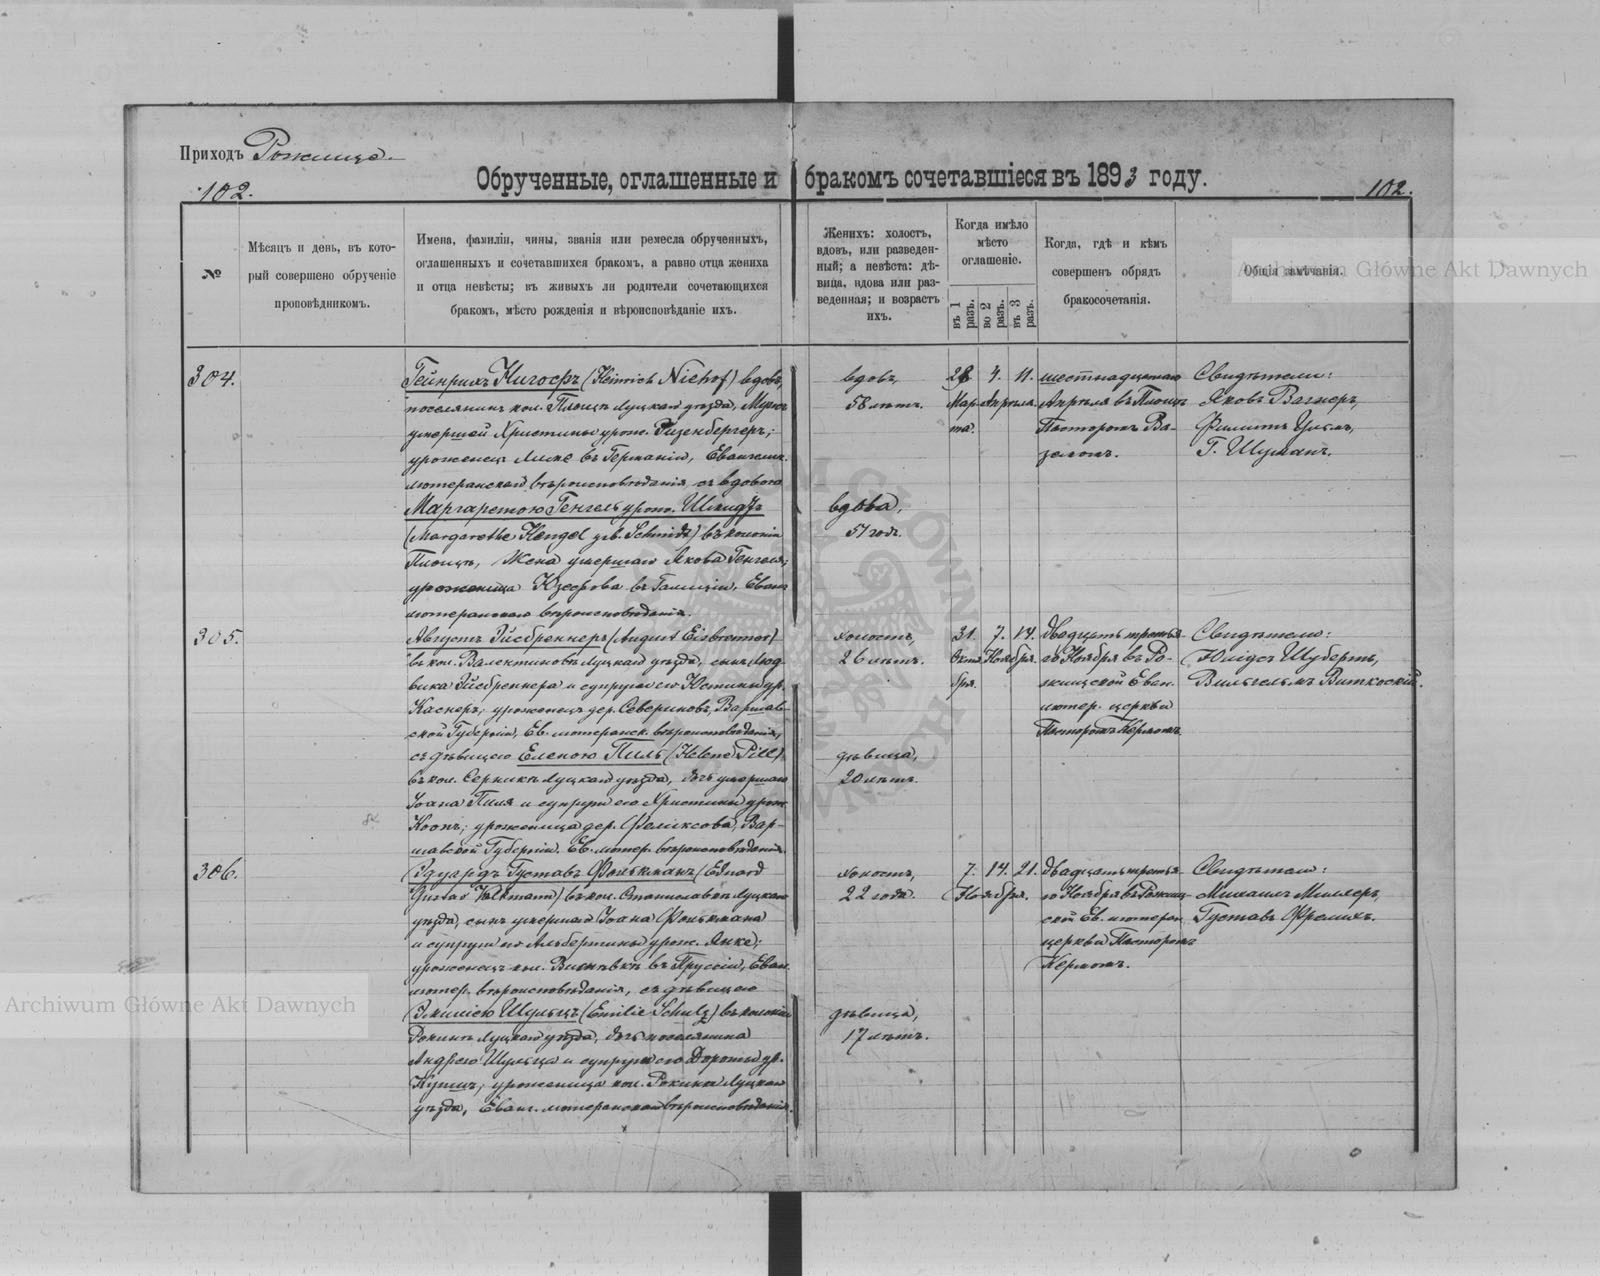 Приходъ Рожище
102.
Обрученные, оглашенные и бракомъ сочетавшіеся въ 1893 году.
102.
№
Мѣсяцъ и день, въ кото-
рый совершено обрученіе
проповѣдникомъ.
Имена, фамиліи, чины, званія или ремесла обрученныхъ,
оглашенныхъ и сочетавшихся бракомъ, а равно отца жениха
и отца невѣсты; въ живыхъ ли родители сочетающихся
бракомъ, мѣсто рожденія и вѣроисповѣданіе ихъ.
Женихъ: холостъ,
вдовъ, или разведен-
ный; а невѣста: дѣ-
вица, вдова или раз-
веденная; и возрастъ
ихъ.
Когда имѣло
мѣсто
оглашеніе.
въ 1 разъ.
во 2 разъ.
въ 3 разъ.
Когда, гдѣ и кѣмъ
совершенъ обрядъ
бракосочетанія.
Общія замѣчанія.
Archiwum Główne Akt Dawnych
304.
Гейнрихъ Нигофъ (Heinrich Niehof) вдовъ,
поселянинъ кол. Луцкаго уѣзда, Мужъ
умершей Христины урож. Ризенбергеръ;
уроженецъ въ Германіи, Евангелич.
лютеранскаго вѣроисповѣданія, съ вдовою
Маргаретою Генгель урож. Шмидтъ
(Margarethe Hengel geb. Schmidt) въ колоніи
Жена умершаго Якова Генгеля;
уроженица въ Галиціи, Еванг.
лютеранскаго вѣроисповѣданія.
вдовъ,
58 лѣтъ.
вдова,
51 годъ.
28 4. 11.
Мар- Апрѣля.
та.
шестнадцатаго
Апрѣля въ
Пасторомъ Ва-
земомъ.
Свидѣтели:
Яковъ Вагнеръ,
Филиппъ
Г. Шуманъ.
305.
Августъ Эйсбреннеръ (August Eisbrenner)
въ кол. Валентиновъ Луцкаго уѣзда, сынъ Люд-
вика Эйсбреннера и супруги его Юстины ур.
Каснеръ; уроженецъ дер. Севериновъ, Варшав-
ской Губерніи, Ев. лютеранск. вѣроисповѣданія,
съ дѣвицею Еленою Пиль (Helene Pill)
въ кол. Серники Луцкаго уѣзда, дочь умершаго
Іоана Пиля и супруги его Христины урож.
Коопъ; уроженица дер. Феликсова, Вар-
шавской Губерніи. Ев. лютер. вѣроисповѣданія.
холостъ,
26 лѣтъ.
дѣвица,
20 лѣтъ.
31. 7. 14.
Октя- Ноября.
бря.
Двадцать третья-
го Ноября въ Ро-
жищской Еван.
лютер. церкви
Пасторомъ Кермомъ.
Свидѣтели:
Юліусъ Шубертъ,
Вильгельмъ Виткоскій.
306.
Эдуардъ Густавъ Фолькманъ (Eduard
Gustav Volkmann) въ кол. Станиславовка Луцкаго
уѣзда, сынъ умершаго Іоана Фолькмана
и супруги его Альбертины урож. Янке;
уроженецъ кол. въ Пруссіи, Еван.
лютер. вѣроисповѣданія, съ дѣвицею
Эмиліею Шульцъ (Emilie Schulz) въ колоніи
Рокини Луцкаго уѣзда, дочь поселянина
Андрея Шульца и супруги его Доротеи ур.
уроженица кол. Рокини Луцкаго
уѣзда, Еванг. лютеранскаго вѣроисповѣданія.
холостъ,
22 года.
дѣвица,
17 лѣтъ.
7. 14. 21.
Ноября.
Двадцать третья-
го Ноября въ Рожищ-
ской Ев. лютеран.
церкви Пасторомъ
Кермомъ.
Свидѣтели:
Михаилъ Миллеръ,
Густавъ Фрелихъ.
Archiwum Główne Akt Dawnych